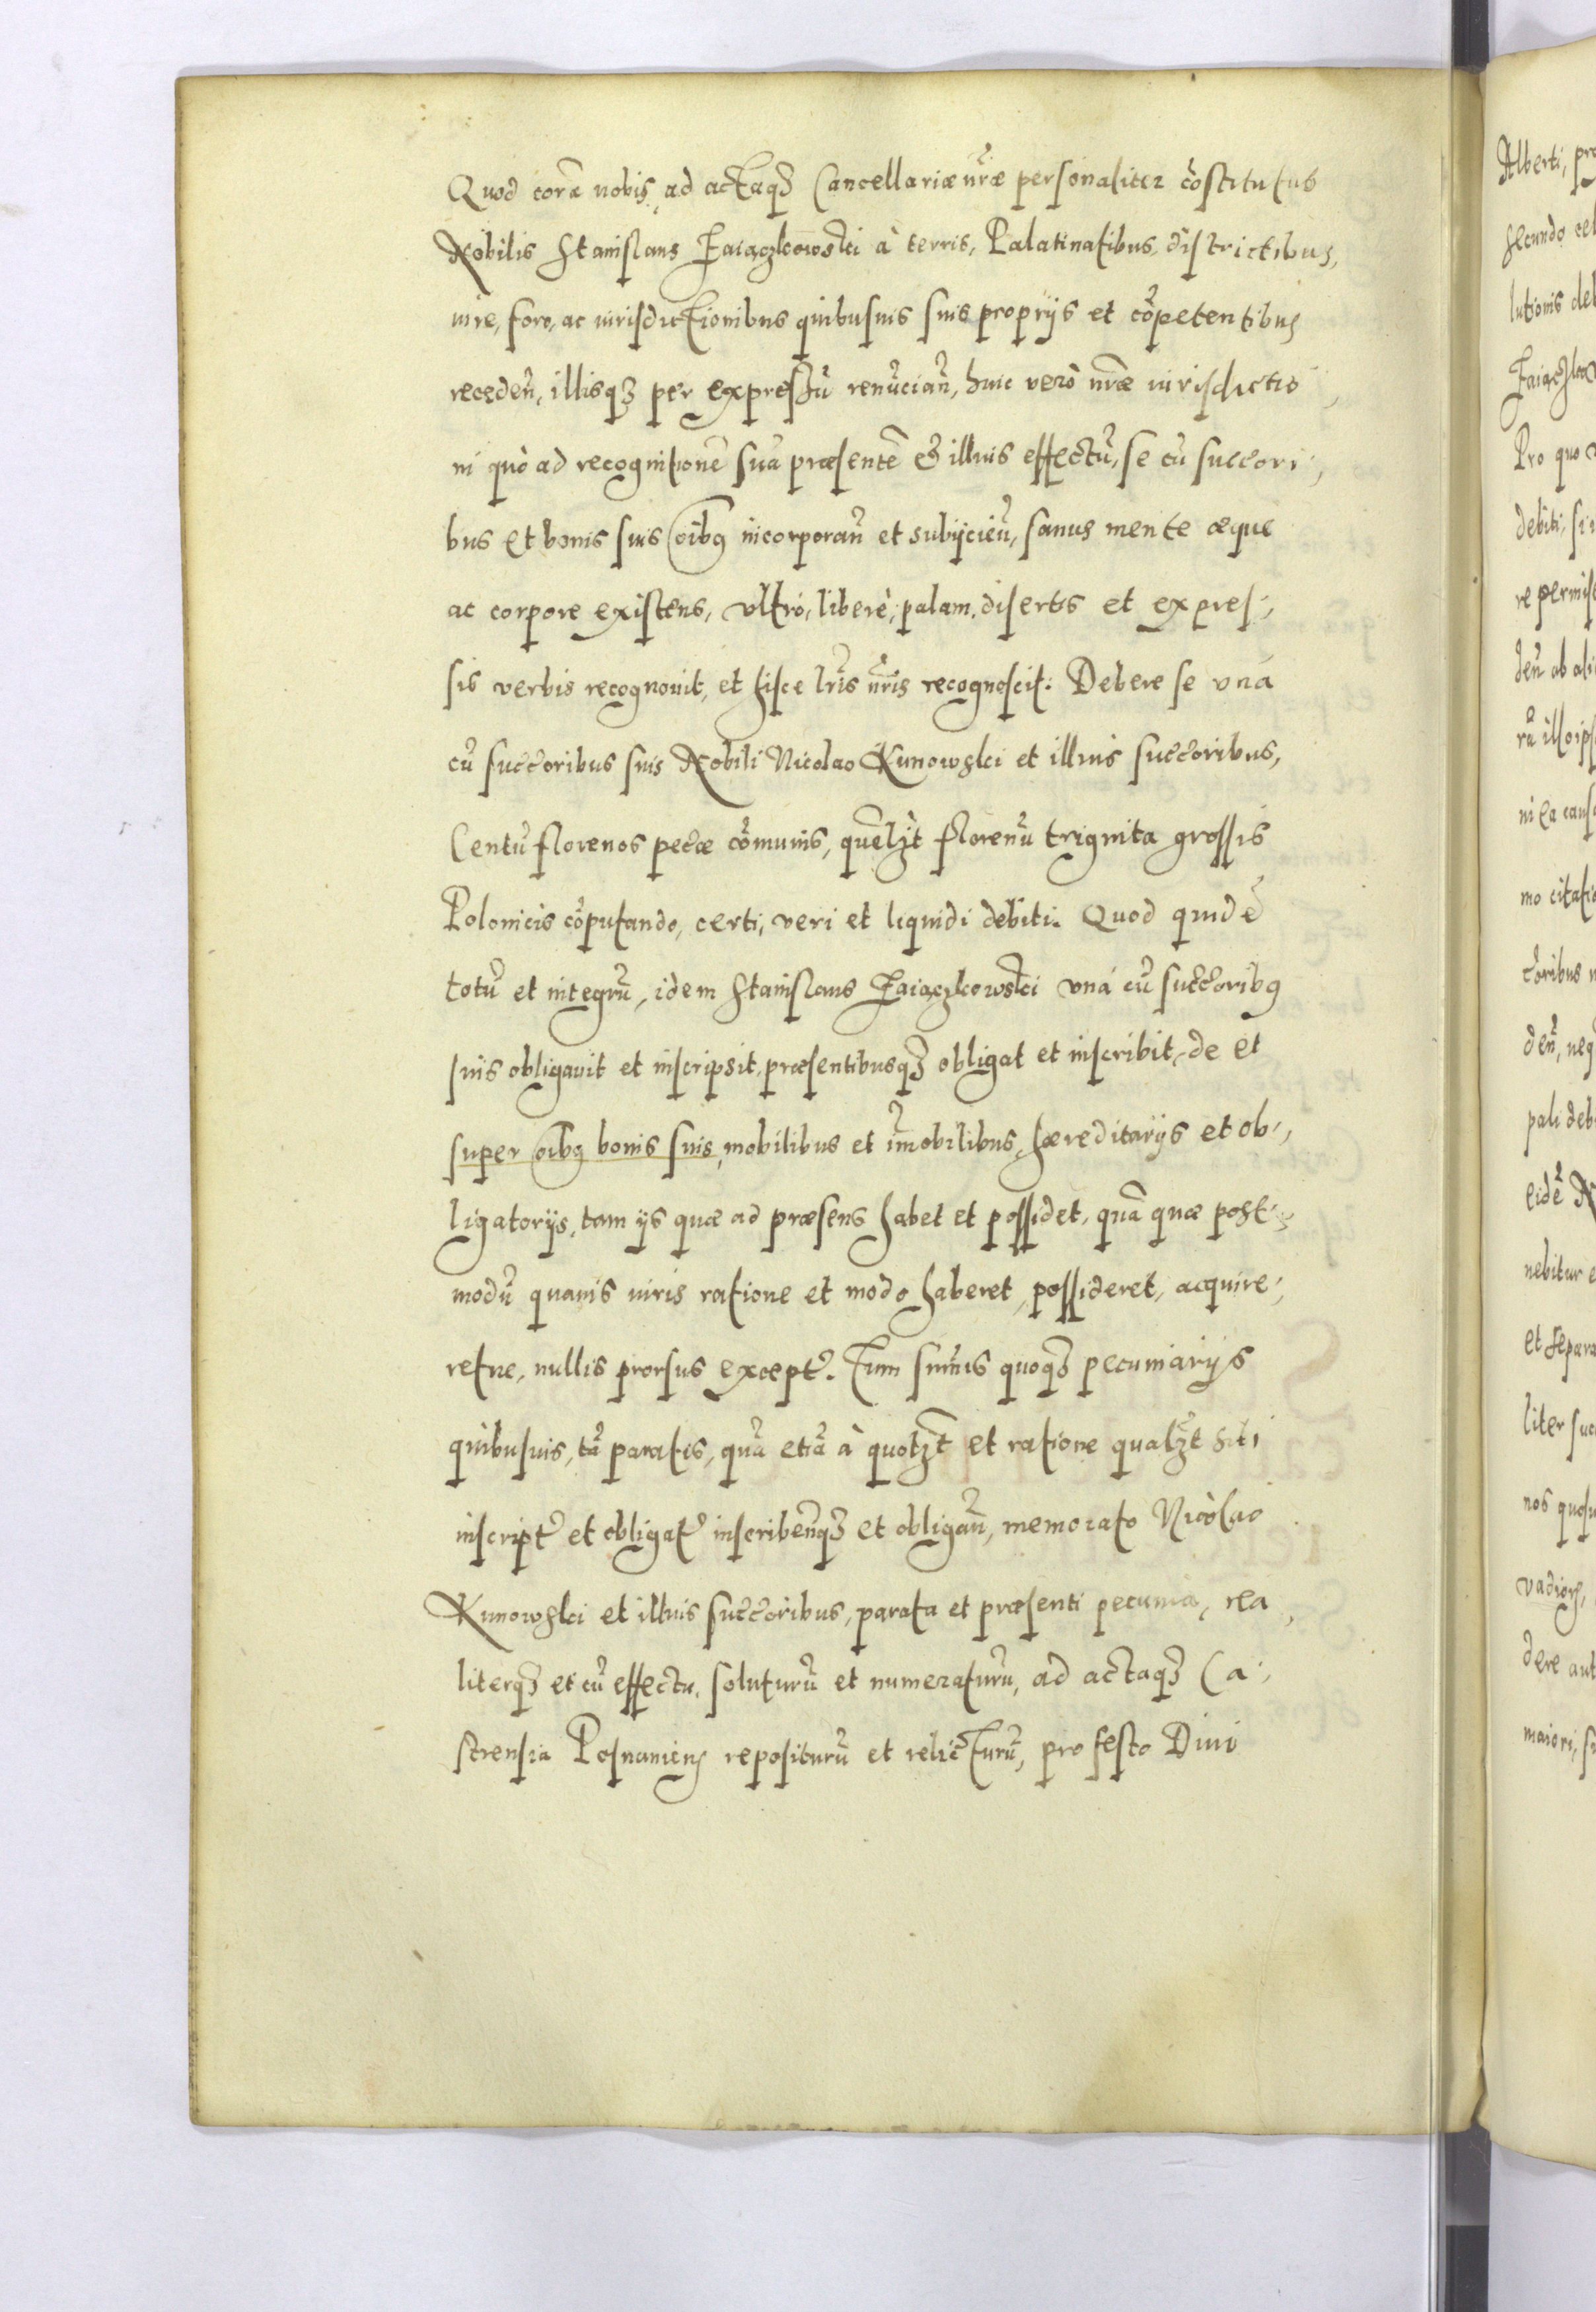 Quod corā nobis, ad actaqꝫ Cancellariæ nr̃æ personaliter cõstitutus
Nobilis Stanislaus Zaiączkowski à terris, Palatinatibus, districtibus,
iure, foro, ac iurisdictionibus quibusuis suis proprijs et cõpetentibus
receden̄, illisqꝫ per expressū renūcian̄, huic verò nr̃æ iurisdictio,
ni quò ad recognitionē suā præsentē et illius effectū, se cū succori,
bus et bonis suis oībꝯ incorporan̄ et subijcien̄, sanus mente æque
ac corpore existens, vltrò, liberè, palam, disertis et expres,
sis verbis recognouit, et hisce lr̃is nr̃is recognoscit: Debere se vná
cū succoribus suis Nobili Nicolao Kunowski et illius succoribus,
Centū florenos pecūæ cõmunis, quēlꝫt florenū triginta grossis
Polonicis cõputando, certi, veri et liquidi debiti. Quod quidē
totū et integrū, idem Stanislaus Zaiączkowski vná cū succoribꝯ
suis obligauit et inscripsit, præsentibusqꝫ obligat et inscribit, de et
super oībꝯ bonis suis, mobilibus et im̄obilibus, hæreditarijs et ob,
ligatorijs, tam ijs quæ ad præsens habet et possidet, quā quæ post,
modū quauis iuris ratione et modo haberet, possideret, acquire,
retue, nullis prorsus except̃. Tum sum̄is quoqꝫ pecuniarijs
quibusuis, tā paratis, quā etiā à quotꝫt et ratione qualꝫt sibi
inscript̃ et obligat̃ inscriben̄qꝫ et obligan̄, memorato Nicolao
Kunowski et illius succoribus, parata et præsenti pecunia, rea,
literqꝫ et cū effectu, soluturū et numeraturū, ad actaqꝫ Ca,
strensia Posnaniens̄ repositurū et relicturū, pro festo Diui
Alberti,
secundo
lutionis
Pro quo
debiti,
re
den̄ ab
ni ea
mo
den̄,
pali
eidē
nebitur
et separa
liter
nos
dere aut
maiori,